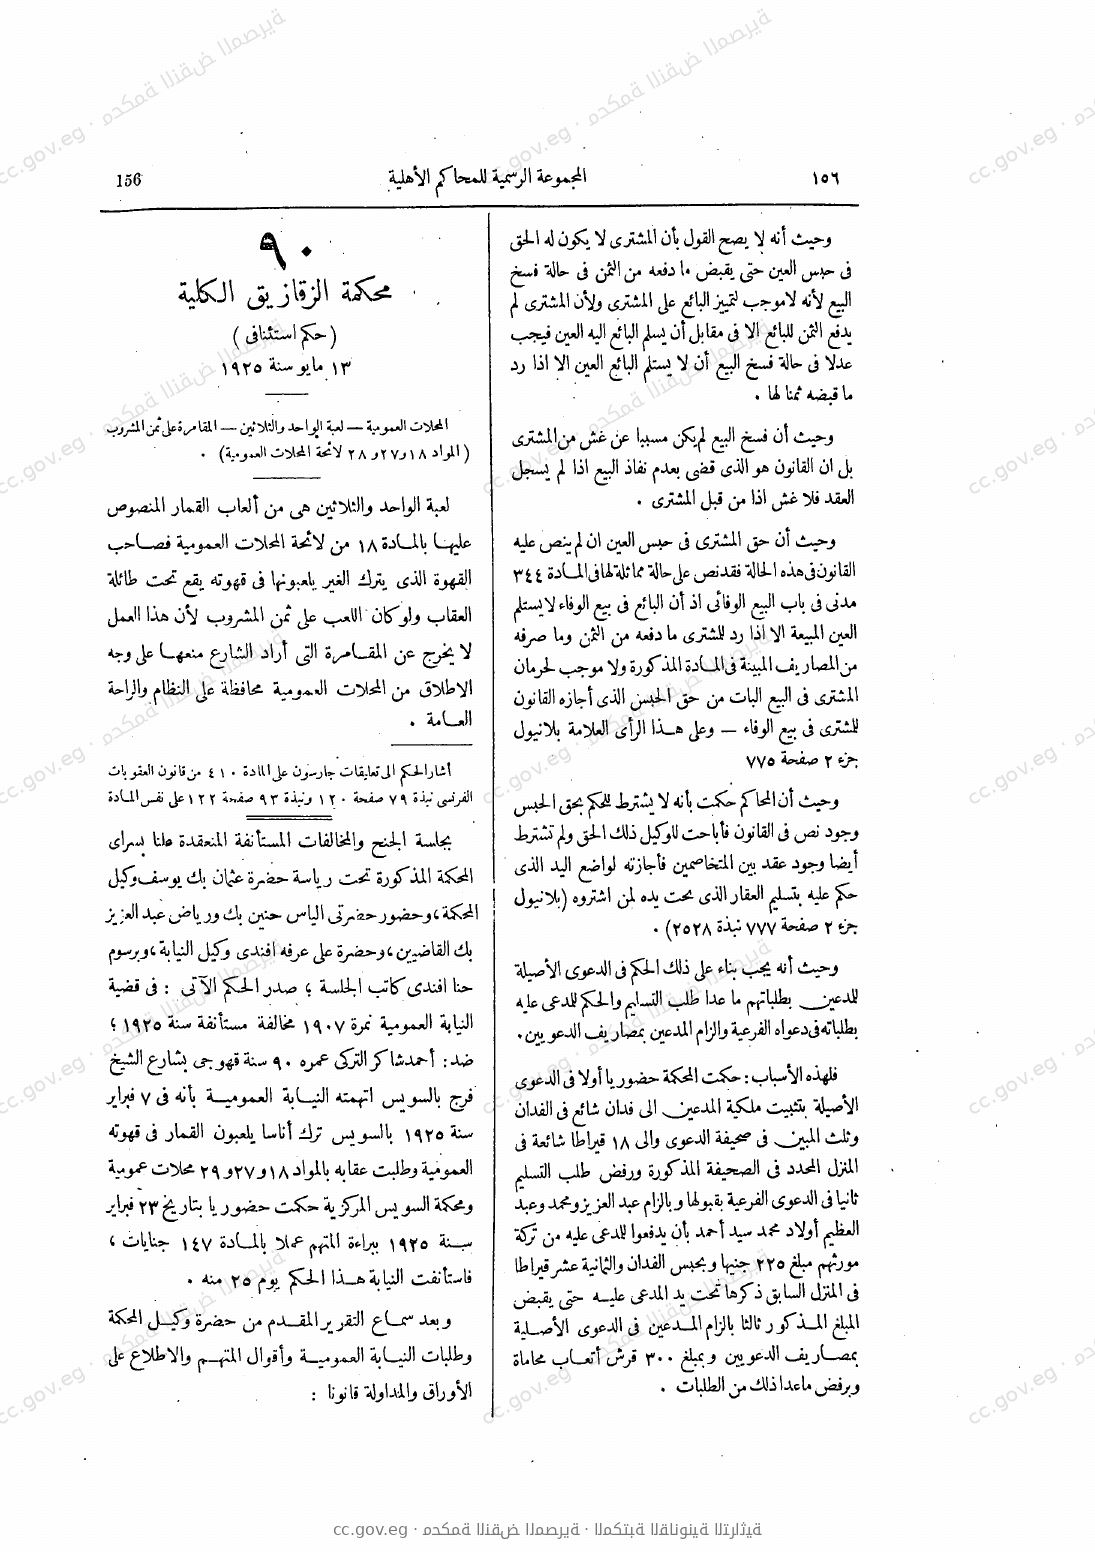 ١٥٦
المجموعة الرسمية للمحاكم الأهلية
156
وحيث أنه لا يصح القول بأن المشترى لا يكون له الحق
فى حبس العين حتى يقبض ما دفعه من الثمن فى حالة فسخ
البيع لأنه لا موجب لتمييز البائع على المشترى ولأن المشترى لم
يدفع الثمن للبائع الا فى مقابل أن يسلم البائع اليه العين فيجب
عدلا فى حالة فسخ البيع أن لا يستلم البائع العين الا اذا رد
ما قبضه ثمنا لها .
وحيث أن فسخ البيع لم يكن مسببا عن غش من المشترى
بل ان القانون هو الذى قضى بعدم نفاذ البيع اذا لم يسجل
العقد فلا غش اذا من قبل المشترى .
وحيث أن حق المشترى فى حبس العين ان لم ينص عليه
القانون فى هذه الحالة فقد نص على حالة مماثلة لها فى المادة ٣٤٤
مدنى فى باب البيع الوفائى اذ أن البائع فى بيع الوفاء لا يستلم
العين المبيعة الا اذا رد للمشترى ما دفعه من الثمن وما صرفه
من المصاريف المبينة فى المادة المذكورة ولا موجب لحرمان
المشترى فى البيع البات من حق الحبس الذى أجازه القانون
للمشترى فى بيع الوفاء — وعلى هذا الرأى العلامة بلانيول
جزء ٢ صفحة ٧٧٥
وحيث أن المحاكم حكمت بأنه لا يشترط للحكم بحق الحبس
وجود نص فى القانون فأباحت للوكيل ذلك الحق ولم تشترط
أيضا وجود عقد بين المتخاصمين فأجازته لواضع اليد الذى
حكم عليه بتسليم العقار الذى تحت يده لمن اشتروه (بلانيول
جزء ٢ صفحة ٧٧٧ نبذة ٢٥٢٨) .
وحيث أنه يجب بناء على ذلك الحكم فى الدعوى الأصيلة
للمدعين بطلباتهم ما عدا طلب التسليم والحكم للمدعى عليه
بطلباته فى دعواه الفرعية والزام المدعين بمصاريف الدعويين .
فلهذه الأسباب : حكمت المحكمة حضوريا أولا فى الدعوى
الأصيلة بتثبيت ملكية المدعين الى فدان شائع فى الفدان
وثلث المبين فى صحيفة الدعوى والى ١٨ قيراطا شائعة فى
المنزل المحدد فى الصحيفة المذكورة ورفض طلب التسليم
ثانيا فى الدعوى الفرعية بقبولها وبالزام عبد العزيز ومحمد وعبد
العظيم أولاد محمد سيد أحمد بأن يدفعوا للمدعى عليه من تركة
مورثهم مبلغ ٢٢٥ جنيها وبحبس الفدان والثمانية عشر قيراطا
فى المنزل السابق ذكرها تحت يد المدعى عليه حتى يقبض
المبلغ المذكور ثالثا بالزام المدعين فى الدعوى الأصلية
بمصاريف الدعويين وبمبلغ ٣٠٠ قرش أتعاب محاماة
وبرفض ماعدا ذلك من الطلبات .
٩٠
محكمة الزقازيق الكلية
(حكم استئنافى)
١٣ مايو سنة ١٩٢٥
المحلات العمومية — لعبة الواحد والثلاثين — المقامرة على ثمن المشروب
(المواد ١٨ و٢٧ و٢٨ لائحة المحلات العمومية) .
لعبة الواحد والثلاثين هى من ألعاب القمار المنصوص
عليها بالمادة ١٨ من لائحة المحلات العمومية فصاحب
القهوة الذى يترك الغير يلعبونها فى قهوته يقع تحت طائلة
العقاب ولو كان اللعب على ثمن المشروب لأن هذا العمل
لا يخرج عن المقامرة التى أراد الشارع منعها على وجه
الاطلاق من المحلات العمومية محافظة على النظام والراحة
العامة .
أشار الحكم الى تعليقات جارسون على المادة ٤١٠ من قانون العقوبات
الفرنسى نبذة ٧٩ صفحة ١٢٠ ونبذة ٩٣ صفحة ١٢٢ على نفس المادة
بجلسة الجنح والمخالفات المستأنفة المنعقدة علنا بسراى
المحكمة المذكورة تحت رياسة حضرة عثمان بك يوسف وكيل
المحكمة ، وحضور حضرتى الياس حنين بك ورياض عبد العزيز
بك القاضيين ، وحضرة على عرفه افندى وكيل النيابة ، وبرسوم
حنا افندى كاتب الجلسة ؛ صدر الحكم الآتى : فى قضية
النيابة العمومية نمرة ١٩٠٧ مخالفة مستأنفة سنة ١٩٢٥ ؛
ضد : أحمد شاكر التركى عمره ٩٠ سنة قهوجى بشارع الشيخ
فرج بالسويس اتهمته النيابة العمومية بأنه فى ٧ فبراير
سنة ١٩٢٥ بالسويس ترك أناسا يلعبون القمار فى قهوته
العمومية وطلبت عقابه بالمواد ١٨ و٢٧ و٢٩ محلات عمومية
ومحكمة السويس المركزية حكمت حضوريا بتاريخ ٢٣ فبراير
سنة ١٩٢٥ ببراءة المتهم عملا بالمادة ١٤٧ جنايات ،
فاستأنفت النيابة هذا الحكم يوم ٢٥ منه .
وبعد سماع التقرير المقدم من حضرة وكيل المحكمة
وطلبات النيابة العمومية وأقوال المتهم والاطلاع على
الأوراق والمداولة قانونا :
cc.gov.eg · محكمة النقض المصرية · المكتبة القانونية التراثية